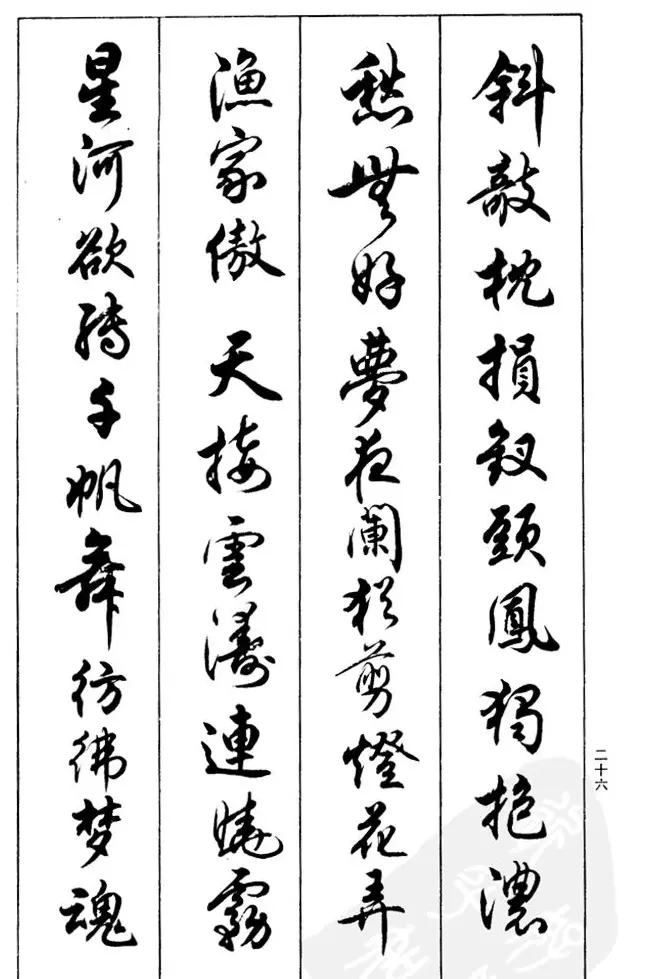 斜敧枕損釵頭鳳獨抱濃
愁無好夢夜闌猶剪燈花弄
漁家傲 天接雲濤連曉霧
星河欲轉千帆舞彷彿梦魂
二十六